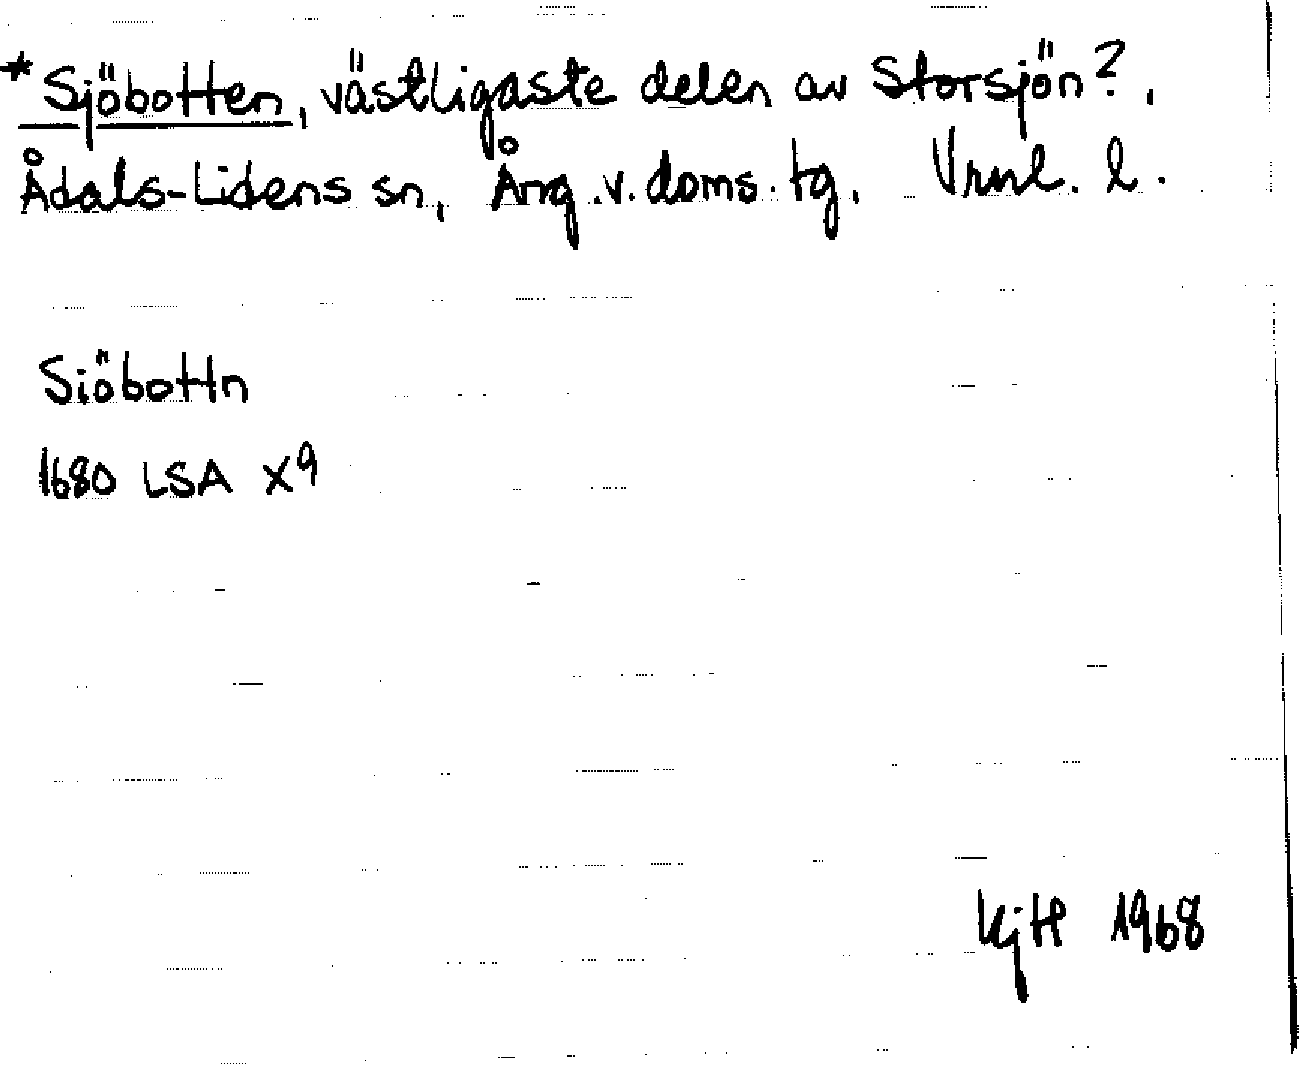 *Sjöbotten, västligaste delen av Storsjön?,
Ådals-Lidens sn, Ång.v.doms.tg. Vrnl. l.
Siöbottn
1680 LSA X9
KjH 1968